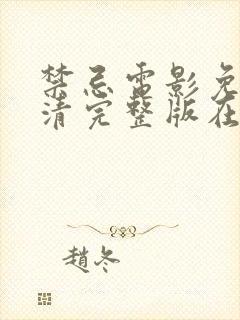 禁忌電影免
清完整版在
趙冬